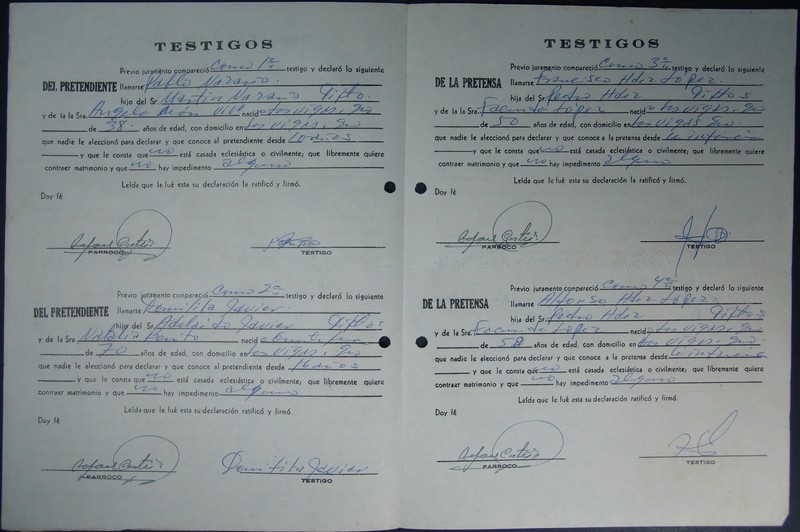 TESTIGOS
Previo juramento compareció Como 1er testigo y declaró lo siguiente
DEL PRETENDIENTE llamarse Pablo Naranjo
hijo del Sr. Martin Naranjo Difto.
y de la Sra. Angela nació en Las Vigas, Gro
de 38 años de edad, con domicilio en Las Vigas, Gro.
que nadie le aleccionó para declarar y que conoce al pretendiente desde 10 años
y que le consta que no está casada eclesiástica o civilmente; que libremente quiere
contraer matrimonio y que no hay impedimento alguno
Leída que le fué esta su declaración la ratificó y firmó.
Doy fé
Rafael Cortés
PARROCO
TESTIGO
Previo juramento compareció Como 2o testigo y declaró lo siguiente
DEL PRETENDIENTE llamarse Domitila Javier
hija del Sr. Adelaido Javier Diftos
y de la Sra. Natalia Benito nació
de 70 años de edad, con domicilio en Las Vigas, Gro
que nadie le aleccionó para declarar y que conoce al pretendiente desde 16 años
y que le consta que no está casada eclesiástica o civilmente; que libremente quiere
contraer matrimonio y que no hay impedimento alguno
Leída que le fué esta su declaración la ratificó y firmó.
Doy fé
Rafael Cortés
PARROCO
Domitila Javier
TESTIGO
TESTIGOS
Previo juramento compareció Como 3o testigo y declaró lo siguiente
DE LA PRETENSA llamarse Francisco Hdez López
hijo del Sr. Pedro Hdez Diftos
y de la Sra. Facunda López nació en Las Vigas, Gro
de 50 años de edad, con domicilio en Las Vigas Gro.
que nadie le aleccionó para declarar y que conoce a la pretensa desde la infancia
y que le consta que no está casada eclesiástica o civilmente; que libremente quiere
contraer matrimonio y que no hay impedimento alguno
Leída que le fué esta su declaración la ratificó y firmó.
Doy fé
Rafael Cortés
PARROCO
TESTIGO
Previo juramento compareció Como 4o testigo y declaró lo siguiente
DE LA PRETENSA llamarse Alfonso Hdez López
hijo del Sr. Pedro Hdez Diftos
y de la Sra. Facunda López nació en Las Vigas, Gro
de 58 años de edad, con domicilio en Las Vigas, Gro
que nadie le aleccionó para declarar y que conoce a la pretensa desde la infancia
y que le consta que no está casada eclesiástica o civilmente; que libremente quiere
contraer matrimonio y que no hay impedimento alguno
Leída que le fué esta su declaración la ratificó y firmó.
Doy fé
Rafael Cortés
PARROCO
TESTIGO